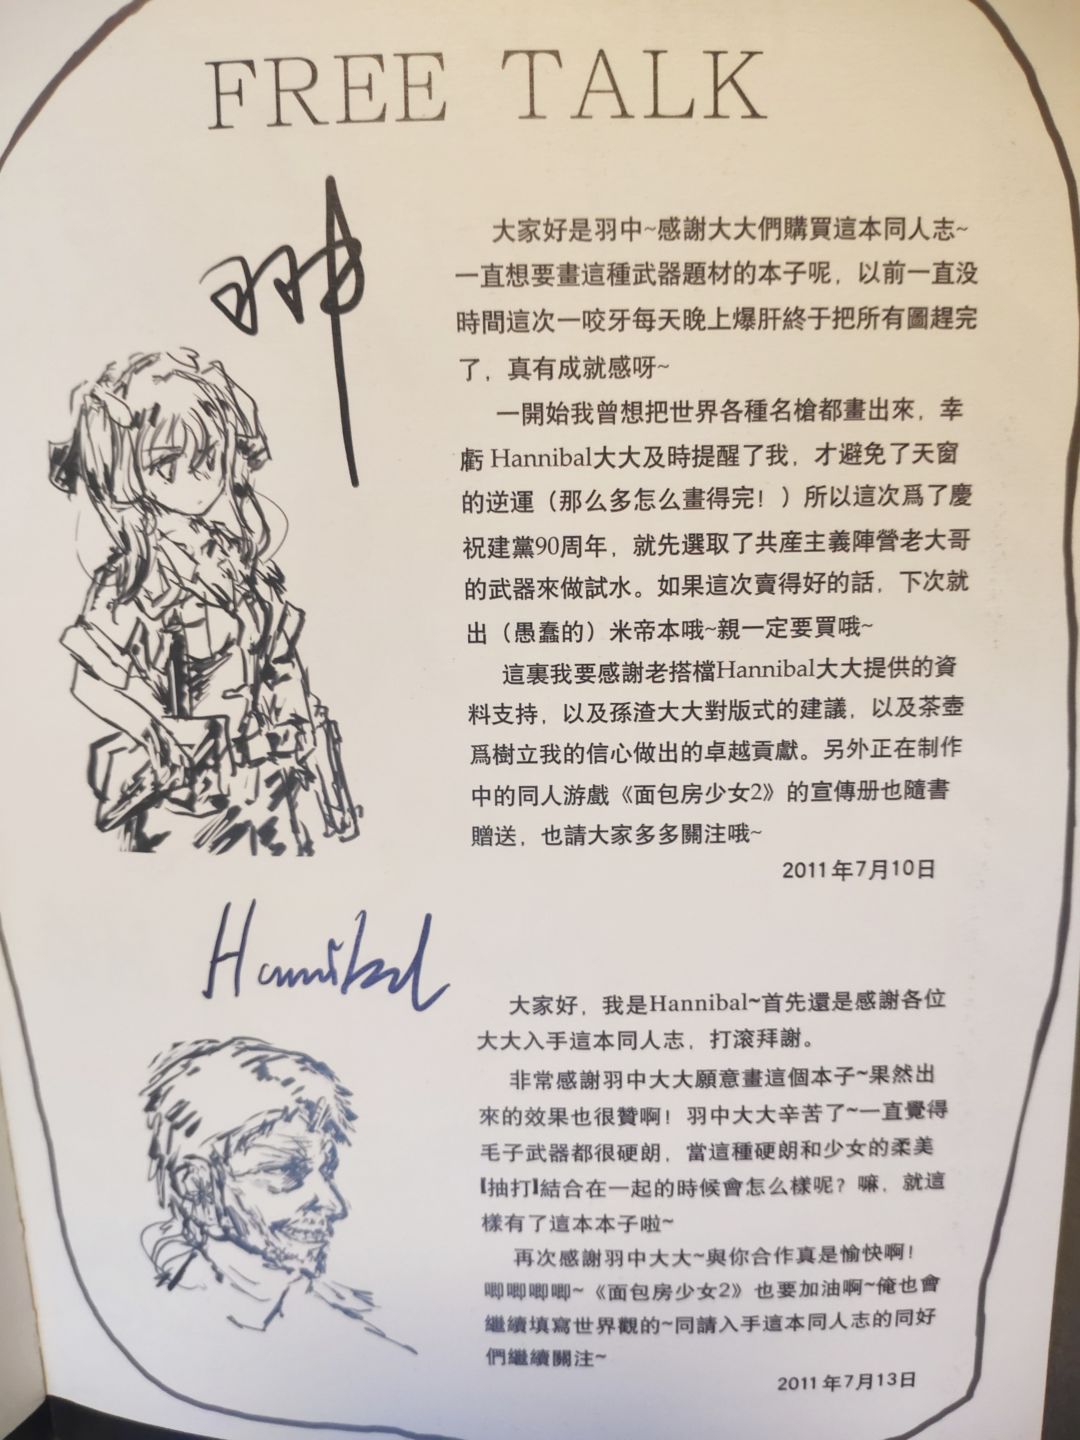 FREE TALK
羽中
大家好是羽中~感謝大大們購買這本同人志~
一直想要畫這種武器題材的本子呢，以前一直没
時間這次一咬牙每天晚上爆肝終于把所有圖趕完
了，真有成就感呀~
一開始我曾想把世界各種名槍都畫出來，幸
虧 Hannibal大大及時提醒了我，才避免了天窗
的逆運（那么多怎么畫得完！）所以這次爲了慶
祝建黨90周年，就先選取了共産主義陣營老大哥
的武器來做試水。如果這次賣得好的話，下次就
出（愚蠢的）米帝本哦~親一定要買哦~
這裏我要感謝老搭檔Hannibal大大提供的資
料支持，以及孫渣大大對版式的建議，以及茶壺
爲樹立我的信心做出的卓越貢獻。另外正在制作
中的同人游戲《面包房少女2》的宣傳册也隨書
贈送，也請大家多多關注哦~
2011年7月10日
Hannibal
大家好，我是Hannibal~首先還是感謝各位
大大入手這本同人志，打滚拜謝。
非常感謝羽中大大願意畫這個本子~果然出
來的效果也很贊啊！羽中大大辛苦了~一直覺得
毛子武器都很硬朗，當這種硬朗和少女的柔美
【抽打】結合在一起的時候會怎么樣呢？嘛，就這
樣有了這本本子啦~
再次感謝羽中大大~與你合作真是愉快啊！
唧唧唧唧~《面包房少女2》也要加油啊~俺也會
繼續填寫世界觀的~同請入手這本同人志的同好
們繼續關注~
2011年7月13日